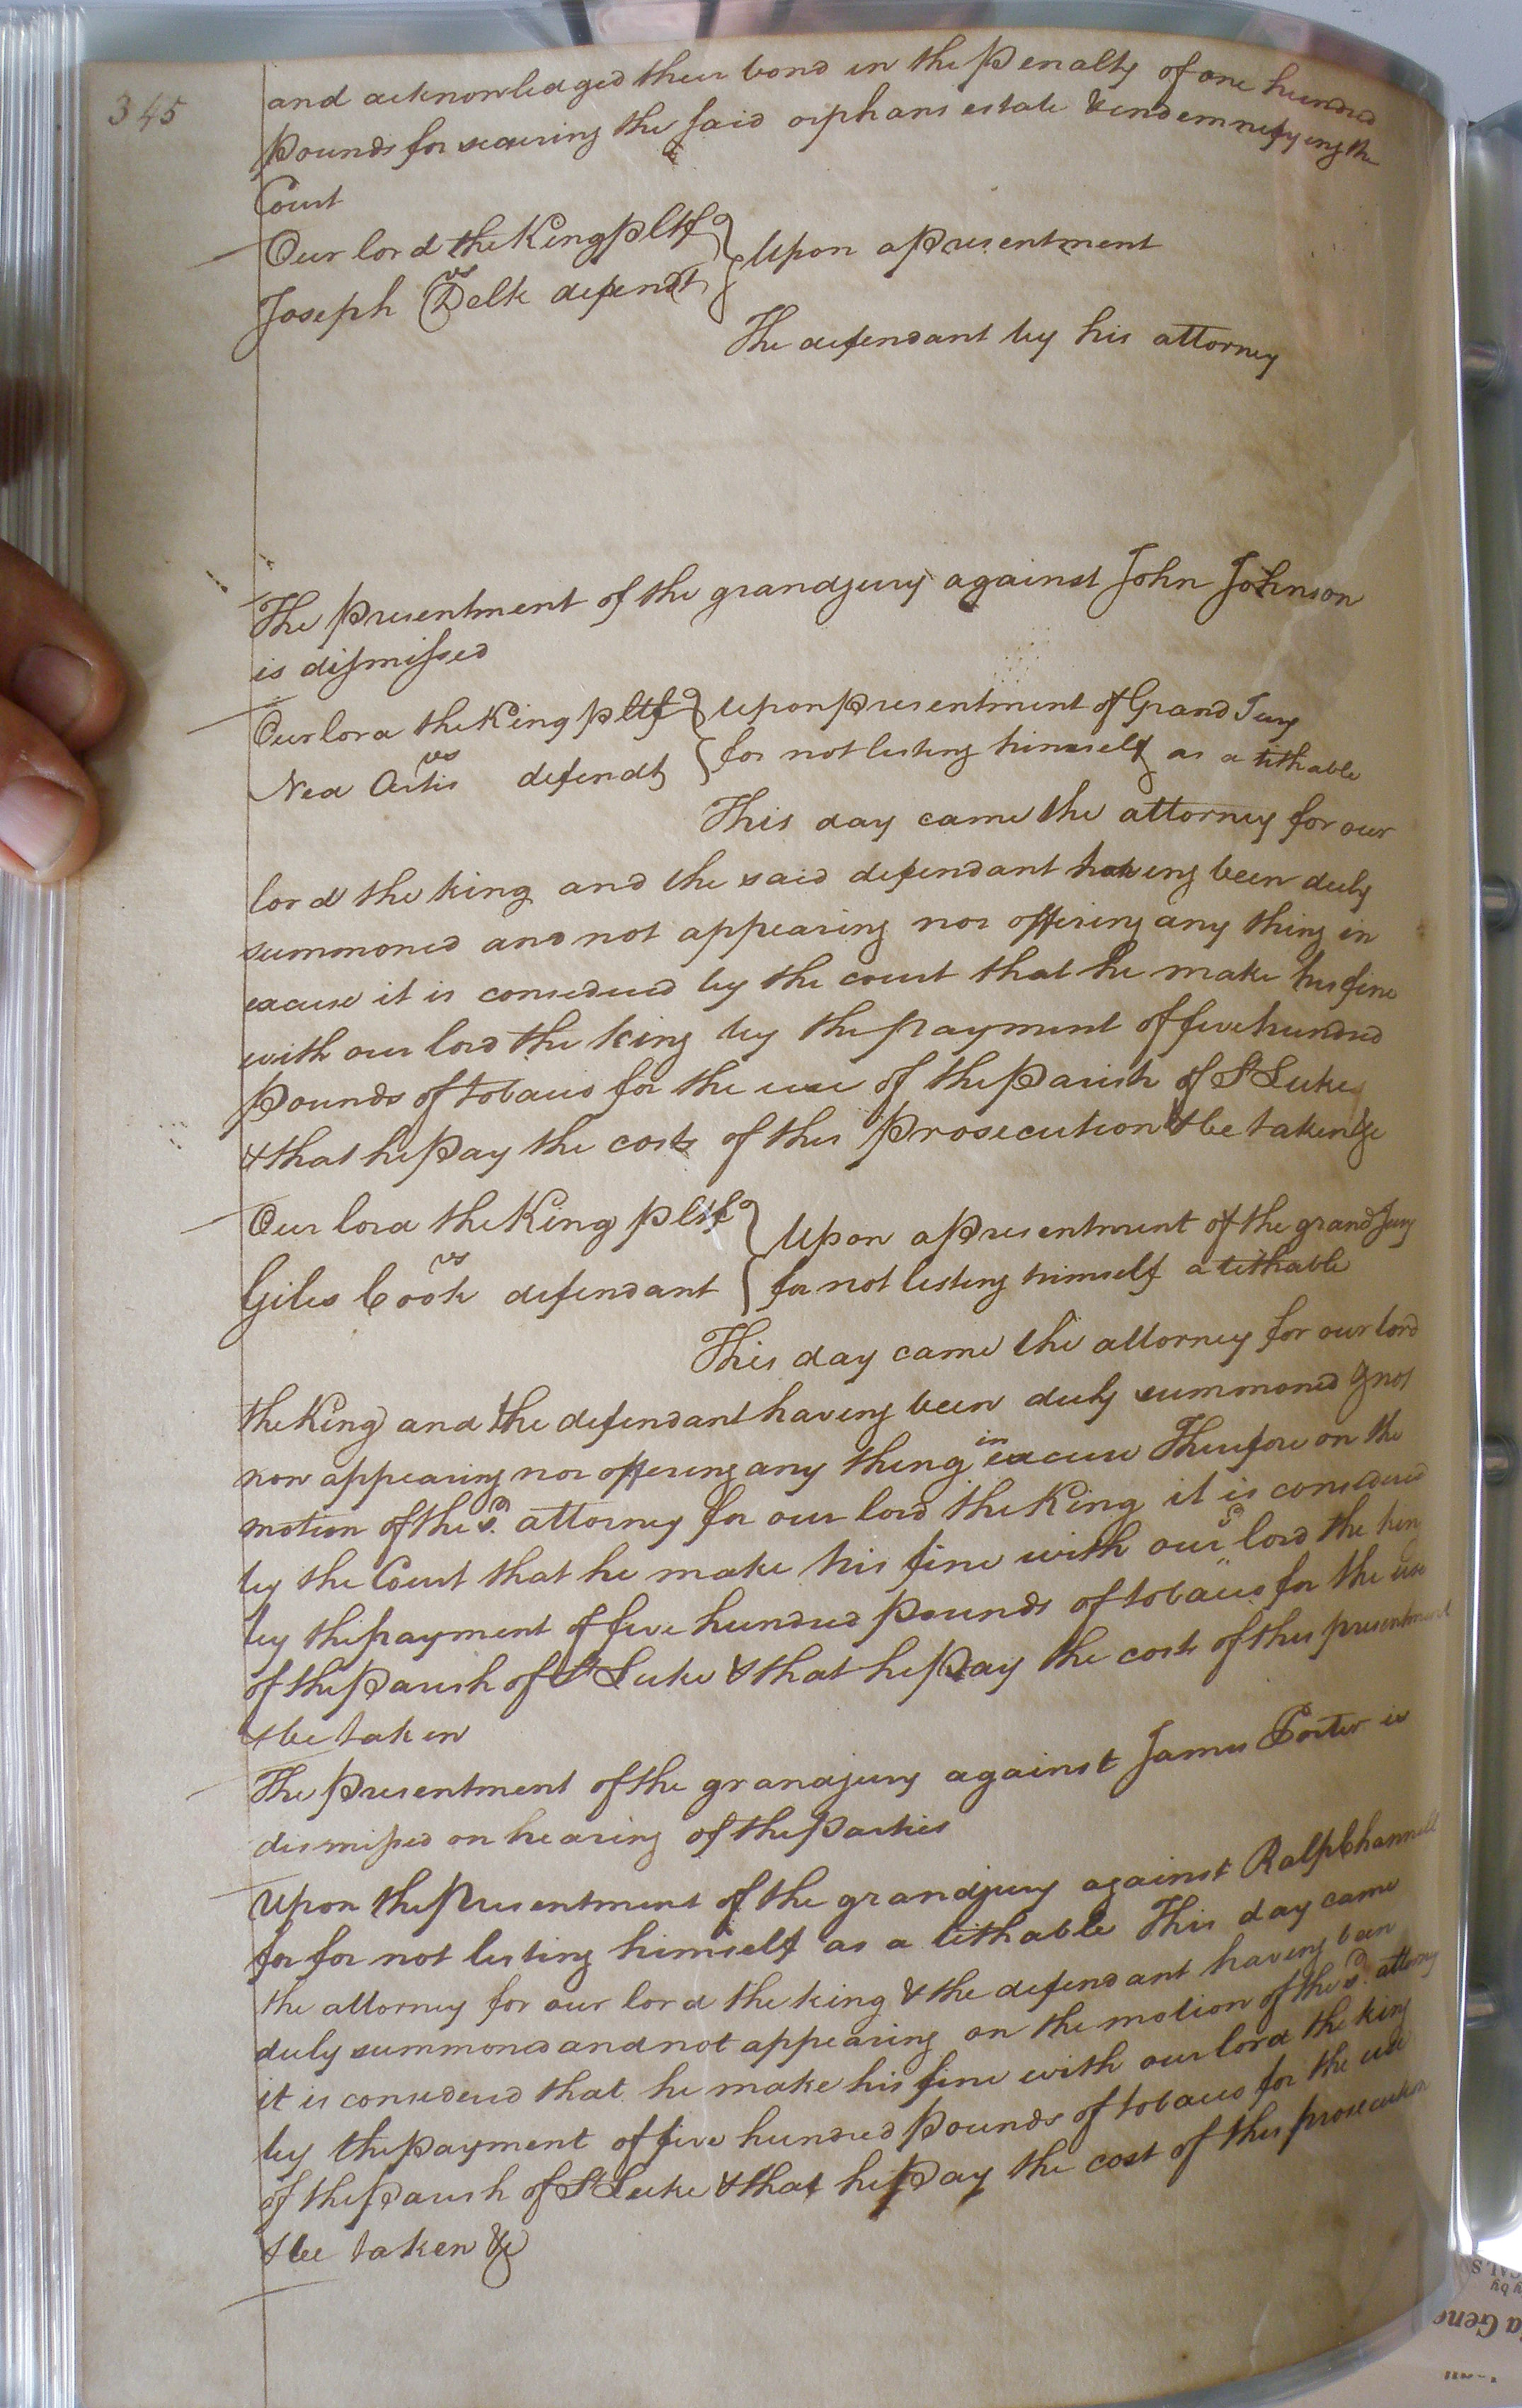 345
and acknowledged their bond in the Penalty of one hundred
Pounds for securing the said orphans estate & indemnifying the
Court
Our lord the King pltf } Upon a Presentment
vs
Joseph Delk defendt
The defendant by his attorney
The Presentment of the grandjury against John Johnson
is dismissed
Our lord the King pltf } Upon Presentment of Grand Jury
vs
Ned Artis defendt } for not listing himself as a tithable
This day came the attorney for our
lord the king and the said defendant having been duly
summoned and not appearing nor offering any thing in
excuse it is considered by the court that he make his fine
with our lord the king by the payment of five hundred
Pounds of tobacco for the use of the Parish of St Luke
& that he Pay the costs of this Prosecution & be taken &c
Our lord the King pltf } Upon a Presentment of the grand Jury
vs
Giles Cook defendant } for not listing himself a tithable
This day came the attorney for our lord
the King and the defendant having been duly summoned & not
now appearing nor offering any thing in excuse Therefore on the
motion of the sd. attorney for our lord the King it is considered
by the Court that he make his fine with our sd lord the kin
by the payment of five hundred Pounds of tobacco for the use
of the Parish of St Luke & that he Pay the costs of this presentment
& be taken
The Presentment of the grandjury against James Porter is
dismissed on hearing of the Parties
Upon the Presentment of the grandjury against Ralph Channell
for for not listing himself as a tithable This day came
the attorney for our lord the king & the defendant having been
duly summoned and not appearing on the motion of the sd. attorney
it is considered that he make his fine with our lord the king
by the payment of five hundred Pounds of tobacco for the use
of the Parish of St Luke & that he Pay the cost of this prosecution
& be taken &c